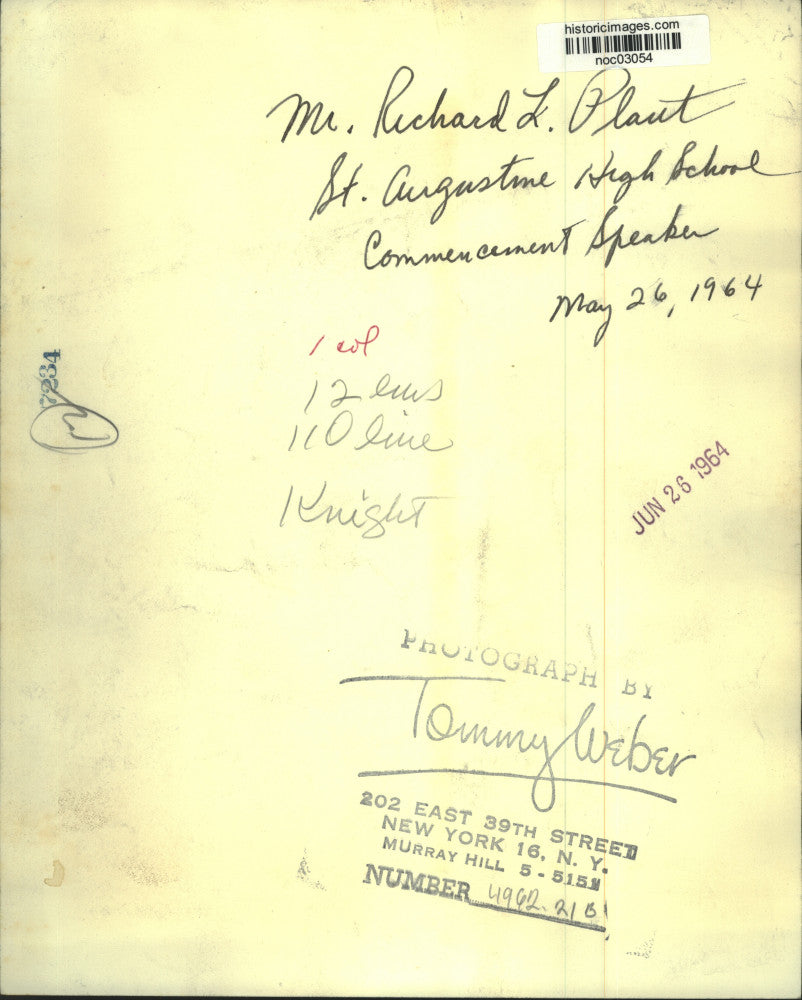 historicimages.com
noc03054
Mr. Richard L. Plant
St. Augustine High School
Commencement Speaker
May 26, 1964
1 col
12 ems
110 line
Knight
7234
JUN 26 1964
PHOTOGRAPH BY
Tommy Weber
202 EAST 39TH STREET
NEW YORK 16, N. Y.
MURRAY HILL 5-5151
NUMBER 4962-21B